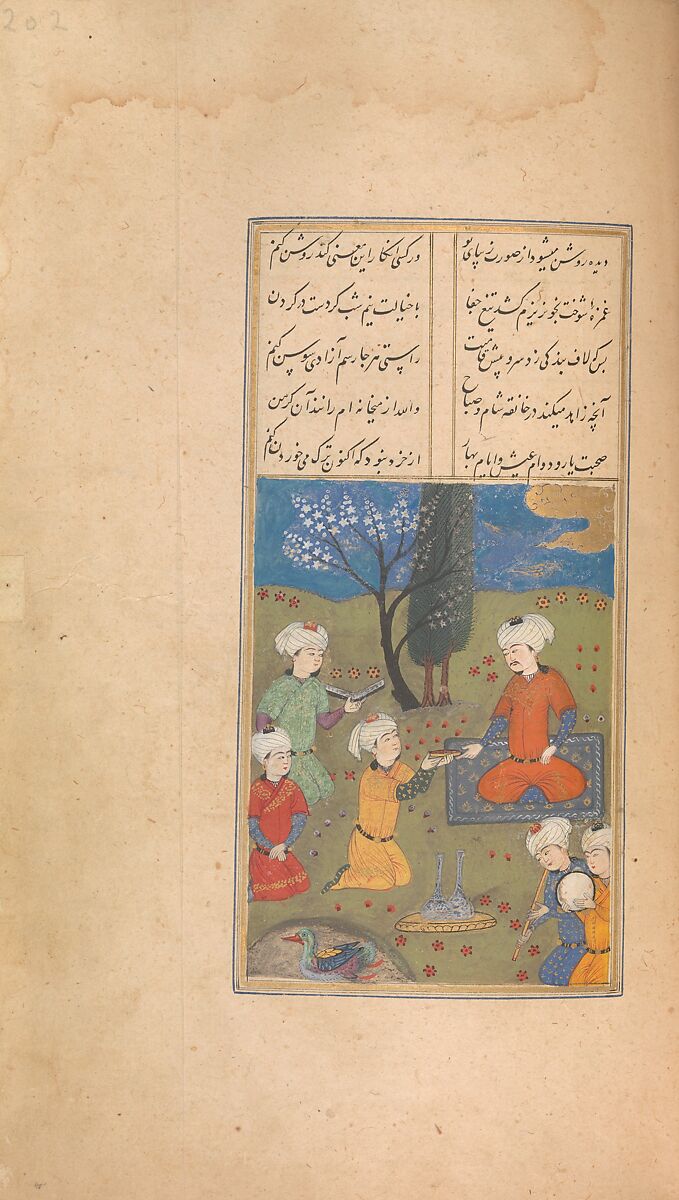 202
دیده روشن میشود از صورت زیبای تو ور کسی انکار این معنی کند روشن کنم
غمزه شوخت بخونریزم کشد تیغ جفا با خیالت نیم شب گر دست در گردن
بس که لاف بندگی زد سرو پیش قامتت راستی هر جا رسم آزادی سوسن کنم
آنچه زاهد میکند در خانقه شام و صباح والله از میخانه ام رانند آن گر من
صحبت یار و دوام عیش و ایام بهار از خرد نبود که اکنون ترک می خوردن کنم